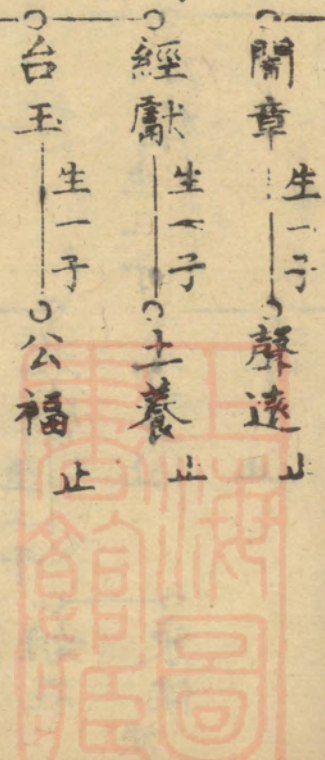 闇章 生一子 聲遠 止
經獻 生一子 士養 止
台玉 生一子 公福 止
上海圖
書館